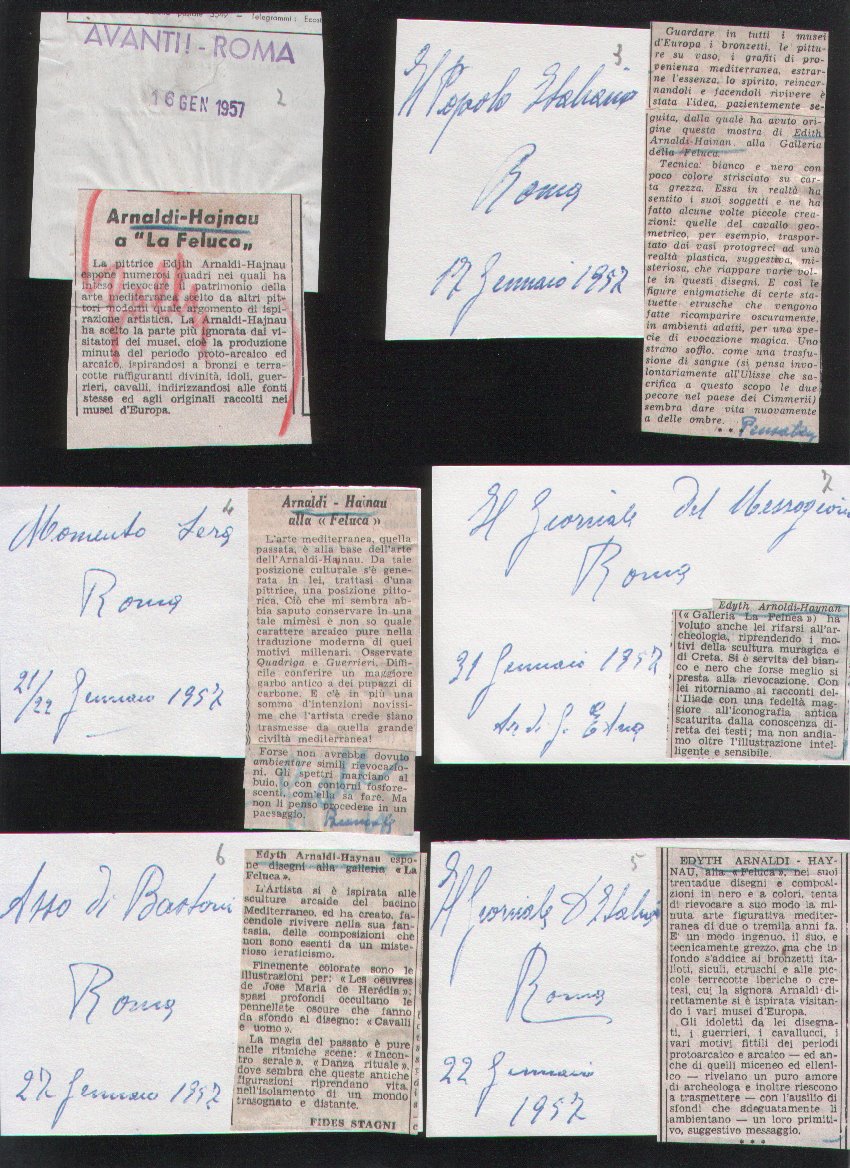 postale 5549 — Telegrammi: Ecost
AVANTI! - ROMA
16 GEN 1957
2
Arnaldi-Hajnau
a "La Feluca„
La pittrice Edjth Arnaldi-Hajnau
espone numerosi quadri nei quali ha
inteso rievocare il patrimonio della
arte mediterranea scelto da altri pit-
tori moderni quale argomento di ispi-
razione artistica. La Arnaldi-Hajnau
ha scelto la parte più ignorata dai vi-
sitatori dei musei, cioè la produzione
minuta del periodo proto-arcaico ed
arcaico, ispirandosi a bronzi e terra-
cotte raffiguranti divinità, idoli, guer-
rieri, cavalli, indirizzandosi alle fonti
stesse ed agli originali raccolti nei
musei d'Europa.
3
Il Popolo Italiano
Roma
17 Gennaio 1957
Guardare in tutti i musei
d'Europa i bronzetti, le pittu-
re su vaso, i grafiti di pro-
venienza mediterranea, estrar-
ne l'essenza, lo spirito, reincar-
nandoli e facendoli rivivere è
stata l'idea, pazientemente se-
guita, dalla quale ha avuto ori-
gine questa mostra di Edith
Arnaldi-Hainan alla Galleria
della Feluca.
Tecnica: bianco e nero con
poco colore strisciato su car-
ta grezza. Essa in realtà ha
sentito i suoi soggetti e ne ha
fatto alcune volte piccole crea-
zioni: quelle del cavallo geo-
metrico, per esempio, traspor-
tato dai vasi protogreci ad una
realtà plastica, suggestiva, mi-
steriosa, che riappare varie vol-
te in questi disegni. E così le
figure enigmatiche di certe sta-
tuette etrusche che vengono
fatte ricomparire oscuramente,
in ambienti adatti, per una spe-
cie di evocazione magica. Uno
strano soffio, come una trasfu-
sione di sangue (si pensa invo-
lontariamente all'Ulisse che sa-
crifica a questo scopo le due
pecore nel paese dei Cimmerii)
sembra dare vita nuovamente
a delle ombre.
4
Momento Sera
Roma
21/22 Gennaio 1957
Arnaldi - Hainau
alla « Feluca »
L'arte mediterranea, quella
passata, è alla base dell'arte
dell'Arnaldi-Hainau. Da tale
posizione culturale s'è gene-
rata in lei, trattasi d'una
pittrice, una posizione pitto-
rica. Ciò che mi sembra ab-
bia saputo conservare in una
tale mimèsi è non so quale
carattere arcaico pure nella
traduzione moderna di quei
motivi millenari. Osservate
Quadriga e Guerrieri. Diffi-
cile conferire un maggiore
garbo antico a dei pupazzi di
carbone. E c'è in più una
somma d'intenzioni novissi-
me che l'artista crede siano
trasmesse da quella grande
civiltà mediterranea!
Forse non avrebbe dovuto
ambientare simili rievocazio-
ni. Gli spettri marciano al
buio, o con contorni fosfore-
scenti, com'ella sa fare. Ma
non li penso procedere in un
paesaggio.
7
Il Giornale del Mezzogiorno
Roma
21 Gennaio 1957
Edyth Arnoldi-Haynan
(« Galleria La Felnea ») ha
voluto anche lei rifarsi all'ar-
cheologia, riprendendo i mo-
tivi della scultura muragica e
di Creta. Si è servita del bian-
co e nero che forse meglio si
presta alla rievocazione. Con
lei ritorniamo ai racconti del-
l'Iliade con una fedeltà mag-
giore all'iconografia antica
scaturita dalla conoscenza di-
retta dei testi; ma non andia-
mo oltre l'illustrazione intel-
ligente e sensibile.
6
Asso di Bastoni
Roma
27 Gennaio 1957
Edyth Arnaldi-Haynau espo-
ne disegni alla galleria «La
Feluca».
L'Artista si è ispirata alle
sculture arcaide del bacino
Mediterraneo, ed ha creato, fa-
cendole rivivere nella sua fan-
tasia, delle composizioni che
non sono esenti da un miste-
rioso ieraticismo.
Finemente colorate sono le
illustrazioni per: «Les oeuvres
de Jose Maria de Herédia»;
spazi profondi occultano le
pennellate oscure che fanno
da sfondo al disegno: «Cavalli
e uomo».
La magia del passato è pure
nelle ritmiche scene: «Incon-
tro serale». «Danza rituale»,
dove sembra che queste antiche
figurazioni riprendano vita,
nell'isolamento di un mondo
trasognato e distante.
FIDES STAGNI
5
Il Giornale d'Italia
Roma
22 Gennaio
1957
EDYTH ARNALDI - HAY-
NAU, alla «Feluca», nei suoi
trentadue disegni e composi-
zioni in nero e a colori, tenta
di rievocare a suo modo la mi-
nuta arte figurativa mediter-
ranea di due o tremila anni fa.
E' un modo ingenuo, il suo, e
tecnicamente grezzo, ma che in
fondo s'addice ai bronzetti ita-
lioti, siculi, etruschi e alle pic-
cole terrecotte iberiche o cre-
tesi, cui la signora Arnaldi di-
rettamente si è ispirata visitan-
do i vari musei d'Europa.
Gli idoletti da lei disegna-
ti, i guerrieri, i cavallucci, i
vari motivi fittili dei periodi
protoarcaico e arcaico — ed an-
che di quelli miceneo ed elleni-
co — rivelano un puro amore
di archeologa e inoltre riescono
a trasmettere — con l'ausilio di
sfondi che adeguatamente li
ambientano — un loro primiti-
vo, suggestivo messaggio.
* * *